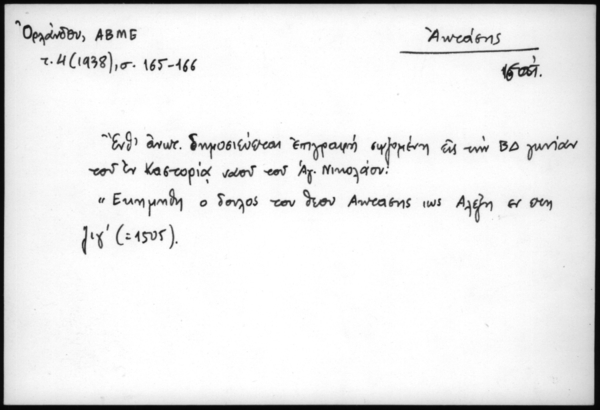 Ὀρλάνδου, ΑΒΜΕ
τ. 4 (1938), σ. 165-166
Ἀπτάσης
Ἔνθ' ἀνωτ. δημοσιεύεται ἐπιγραφή σῳζομένη εἰς τήν ΒΔ γωνίαν
τοῦ ἐν Καστορίᾳ ναοῦ τοῦ Ἁγ. Νικολάου:
"Εκημηθη ο δουλος του θεου Αποτασης ιως Αλεξη εν ετη
ζιγ' (=1505).